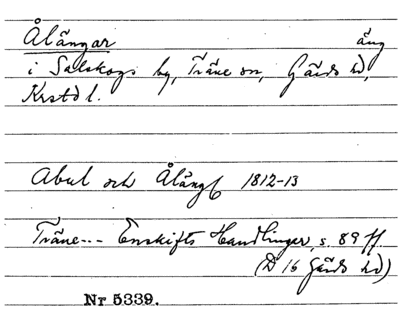 Ålängar äng
i Salskogs by, Träne sn, Gärds hd,
Krstd l.
Abul och Åläng 1812-13
Träne... Enskifts Handlingar, s. 89 ff.
(D 16 Gärds hd)
Nr 5339.